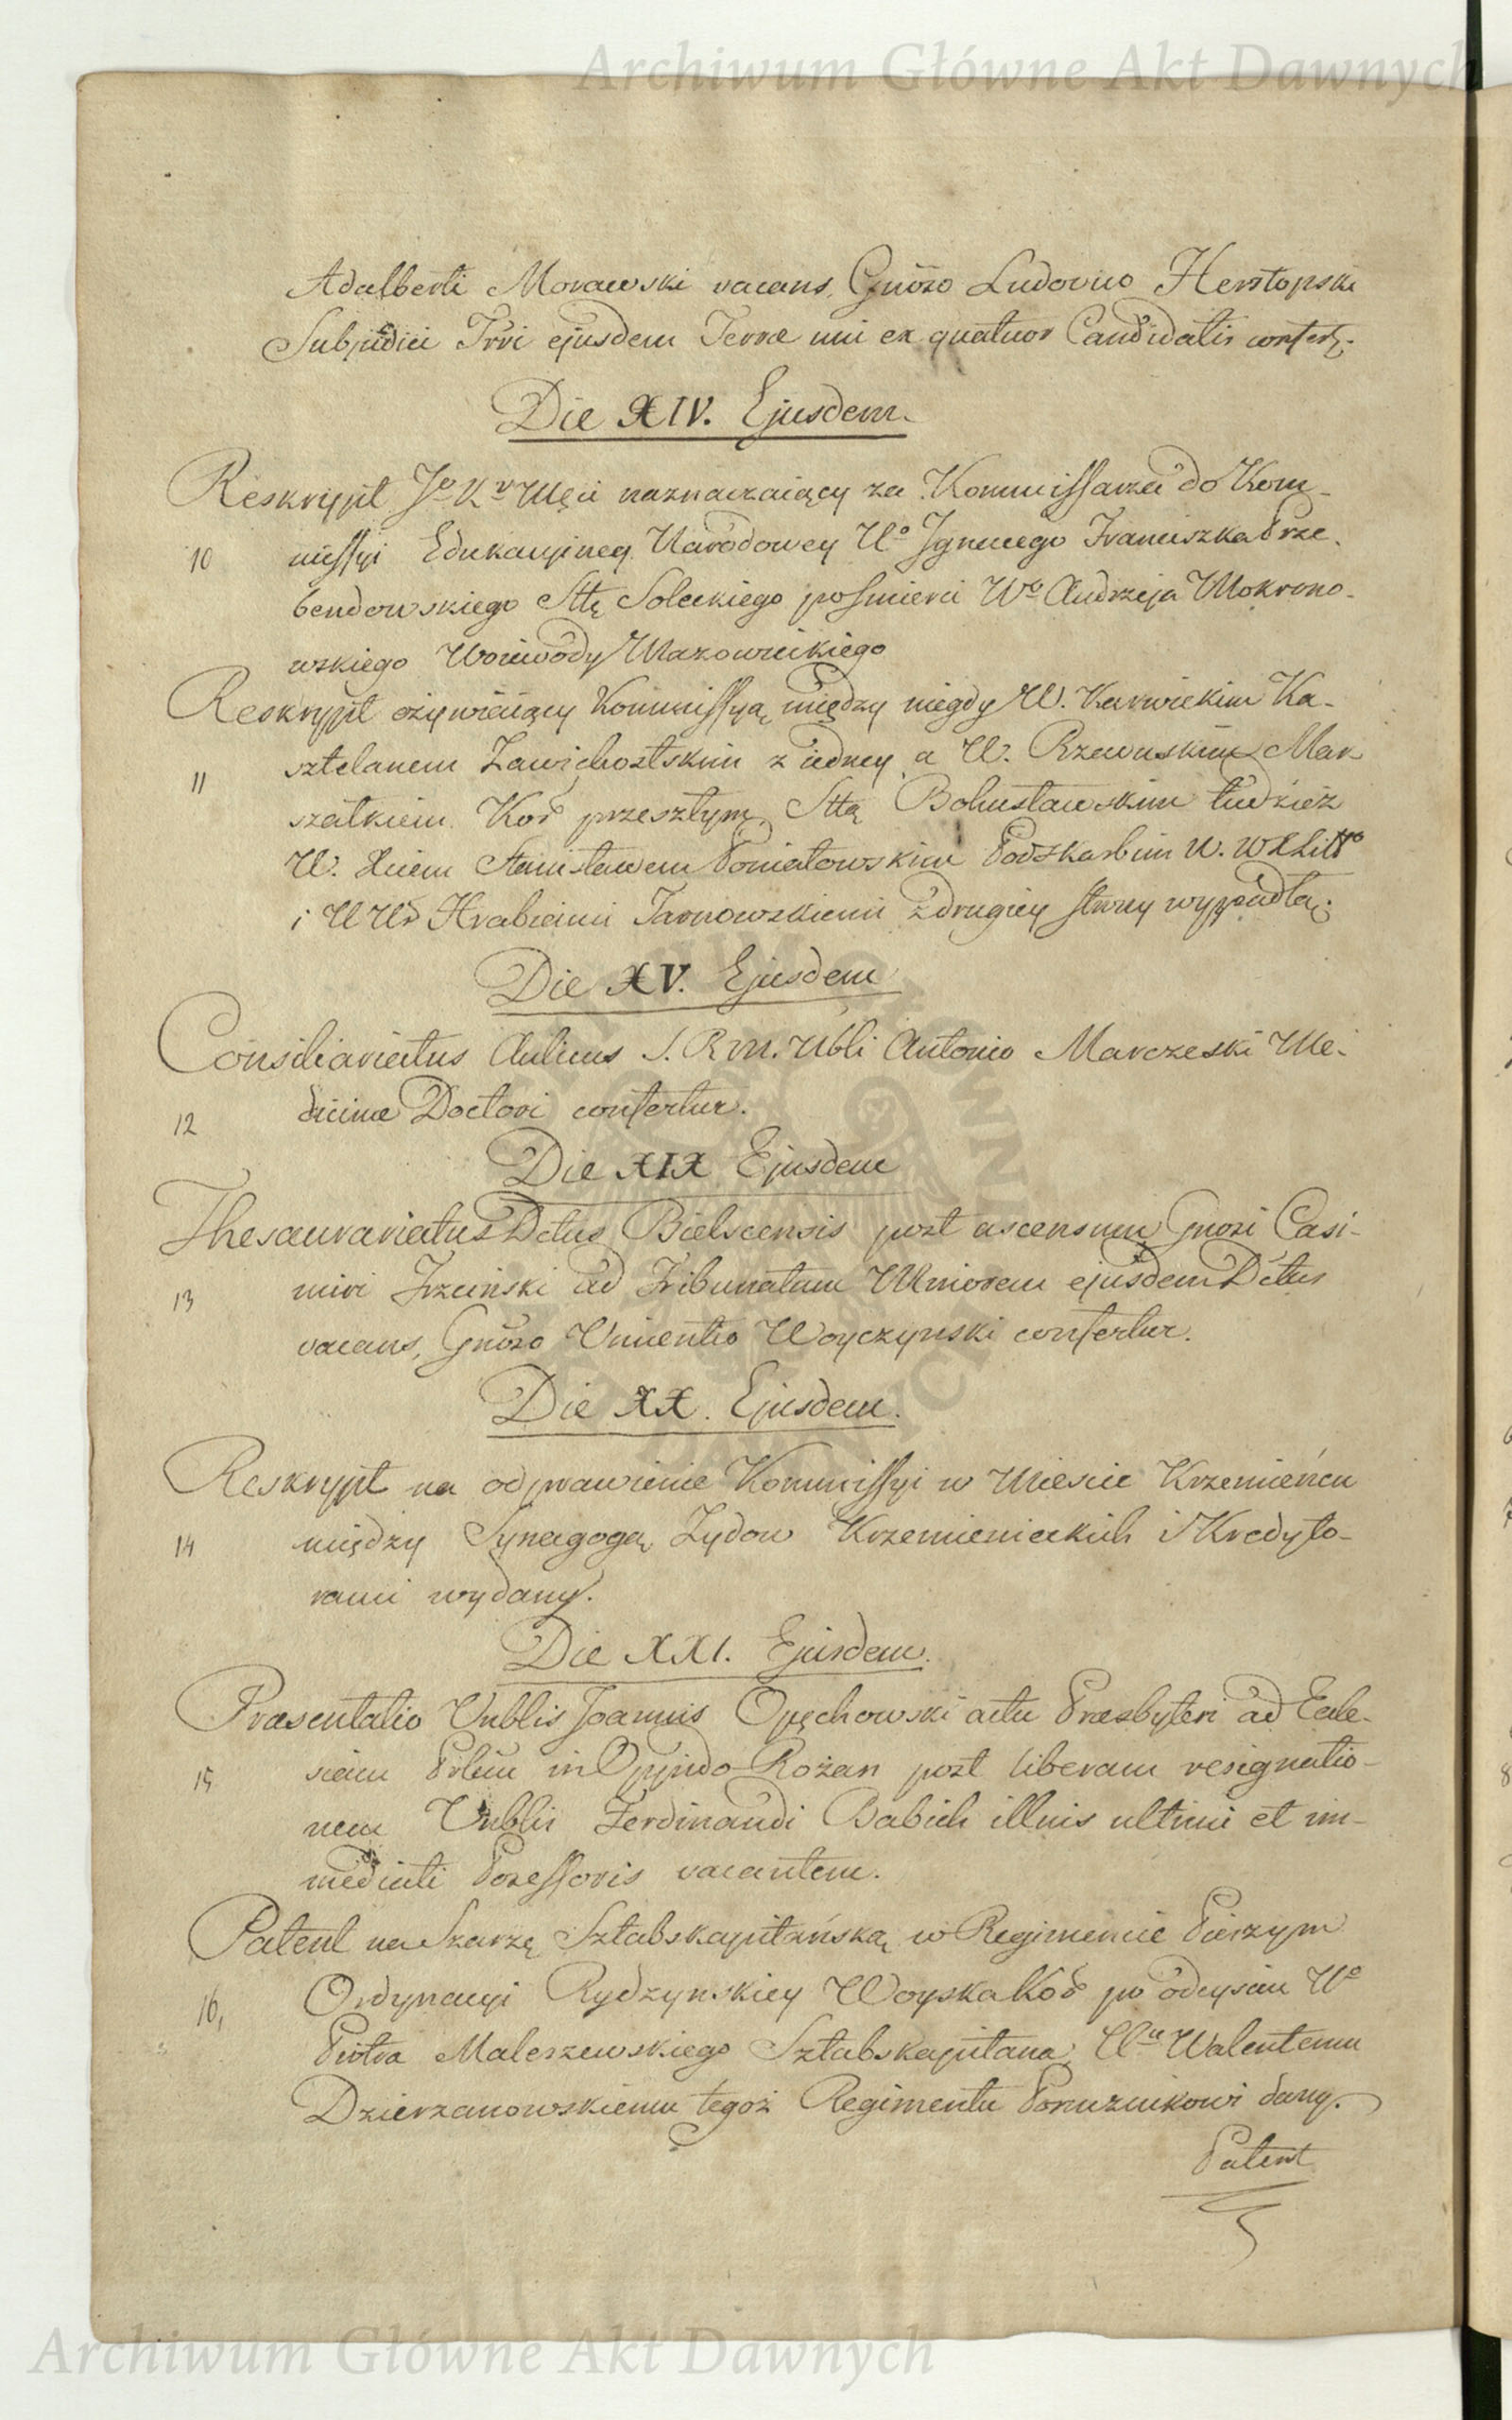 Archiwum Główne Akt Dawnych
Adalberti Morawski vacans, Gnoso Ludovico Herstopski
Subjudici Trri ejusdem Terræ uni ex quatuor Candidatis confert.
Die XIV. Ejusdem.
Reskrypt Jo Kr Mci naznaczaiący za Kommissarza do Kom-
10 missyi Edukacyiney Narodowey Uo Ignacego Franciszka Prze-
bendowskiego Sttę Soleckiego po smierci Wo Andrzeja Mokrono-
wskiego Woiewody Mazowieckiego
Reskrypt ożywiaiący Kommissyą między niegdy W. Karwickim Ka-
11 sztelanem Zawichostskim z iedney a W. Rzewuskim Mar
szałkiem Kor przeszłym, Sttą Bohusławskim tudzież
W. Xciem Stanisławem Poniatowskim Podskarbim W. WXLitto
i UUr Hrabiami Tarnowskiemi z drugiey strony wypadłą.
Die XV. Ejusdem
Consiliariatus Aulicus S. R. M. Nbli Antonio Marczeski Me-
12 dicinæ Doctori confertur.
Die XIX Ejusdem
Thesaurariatus Dctus Bielscensis post ascensum Gnosi Casi-
13 miri Trzciński ad Tribunatum Minorem ejusdem Dctus
vacans, Gnoso Vincentio Woyczynski confertur.
Die XX. Ejusdem.
Reskrypt na odprawienie Kommissyi w Miescie Krzemieńcu
14 między Synagogą Zydow Krzemienieckich i Kredyto-
rami wydany.
Die XXI. Ejusdem.
Præsentatio Vnblis Joannis Opęchowski actu Præsbyteri ad Eccle-
15 siam Prlem in Oppido Rożan post liberam resignatio-
nem Vnblis Ferdinandi Babich illius ultimi et im-
mediati Possessoris vacantem.
Patent na Szarżę Sztabskapitańską w Regimencie Pieszym
16, Ordynacyi Rydzynskiey Woyska Kor po odeysciu Uo
Piotra Maleszewskiego Sztabskapitana, Uu Walentemu
Dzierzanowskiemu tegoż Regimentu Porucznikowi dany.
Patent
Archiwum Główne Akt Dawnych